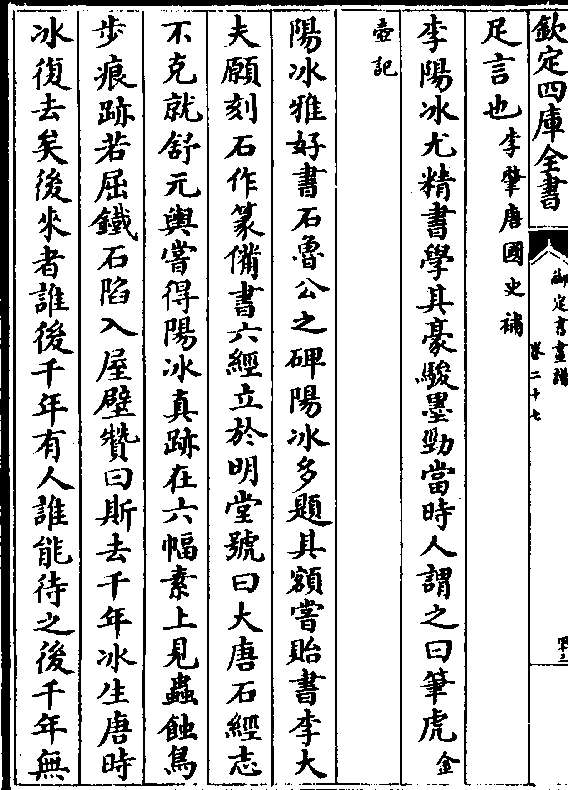 欽定四庫全書
御定書畫譜
卷二十七
足言也李肇唐國史補
李陽冰尤精書學其豪駿墨勁當時人謂之曰筆虎金
壺記
陽冰雅好書石魯公之碑陽冰多題其額嘗貽書李大
夫願刻石作篆備書六經立於明堂號曰大唐石經志
不克就舒元輿嘗得陽冰真跡在六幅素上見蟲蝕鳥
步痕跡若屈鐵石陷入屋壁贊曰斯去千年冰生唐時
冰復去矣後來者誰後千年有人誰能待之後千年無